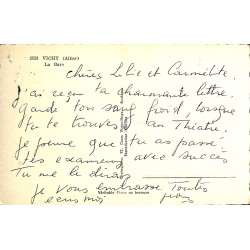 2533 VICHY (Allier)
La Gare
Chères Lilie et Carmélite
j'ai reçu ta charmante lettre.
Garde ton sang froid, lorsque
tu te trouves au Théatre.
Je pense que tu as passé
tes examens avec succès
Tu me le diras
Je vous embrasse Toutes
Véritable Photo au bromure